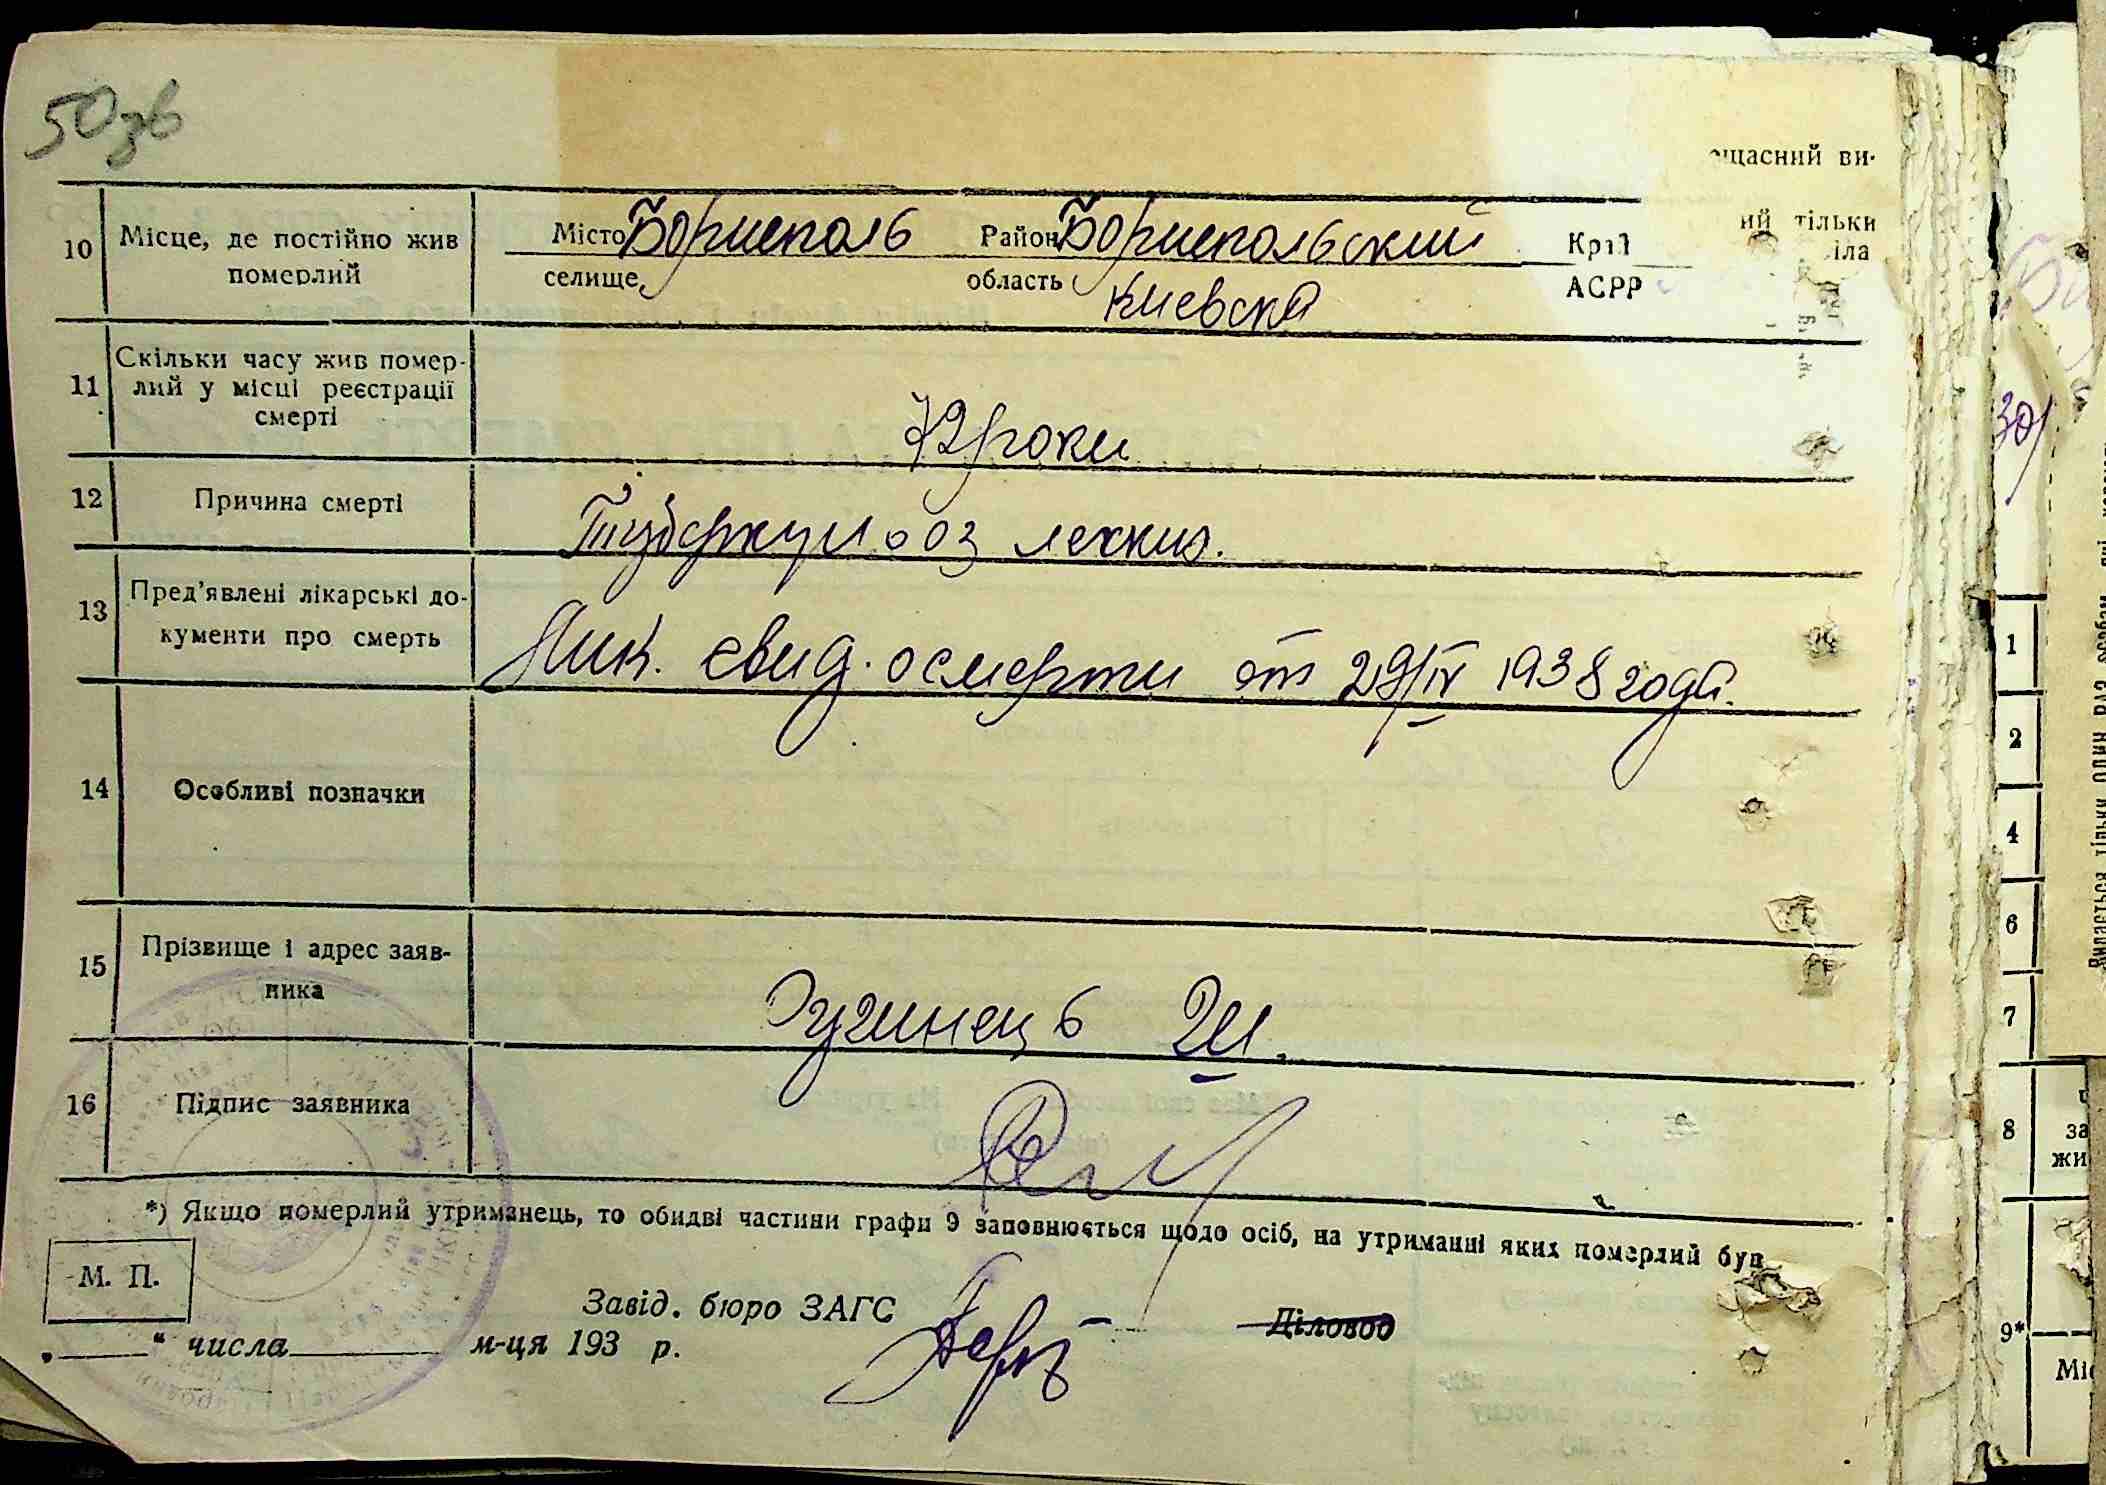 50зв
щасний ви-
ий тільки
іла
10 Місце, де постійно жив
померлий
Місто Борисполь Район Бориспольский Край
селище, область Киевска АСРР
11 Скільки часу жив помер-
лий у місці реєстрації
смерті
72 роки
12 Причина смерті Туберкульоз легких.
13 Пред'явлені лікарські до-
кументи про смерть
Лик. свид. о смерти от 29/IV 1938 года.
14 Особливі позначки
15 Прізвище і адрес заяв-
ника
16 Підпис заявника
*) Якщо померлий утриманець, то обидві частини графи 9 заповнюється щодо осіб, на утриманні яких померлий був
М. П.
Завід. бюро ЗАГС Діловод
„ “ числа м-ця 193 р.
30/
1
2
4
6
7
8
за
жи
9*
Міс